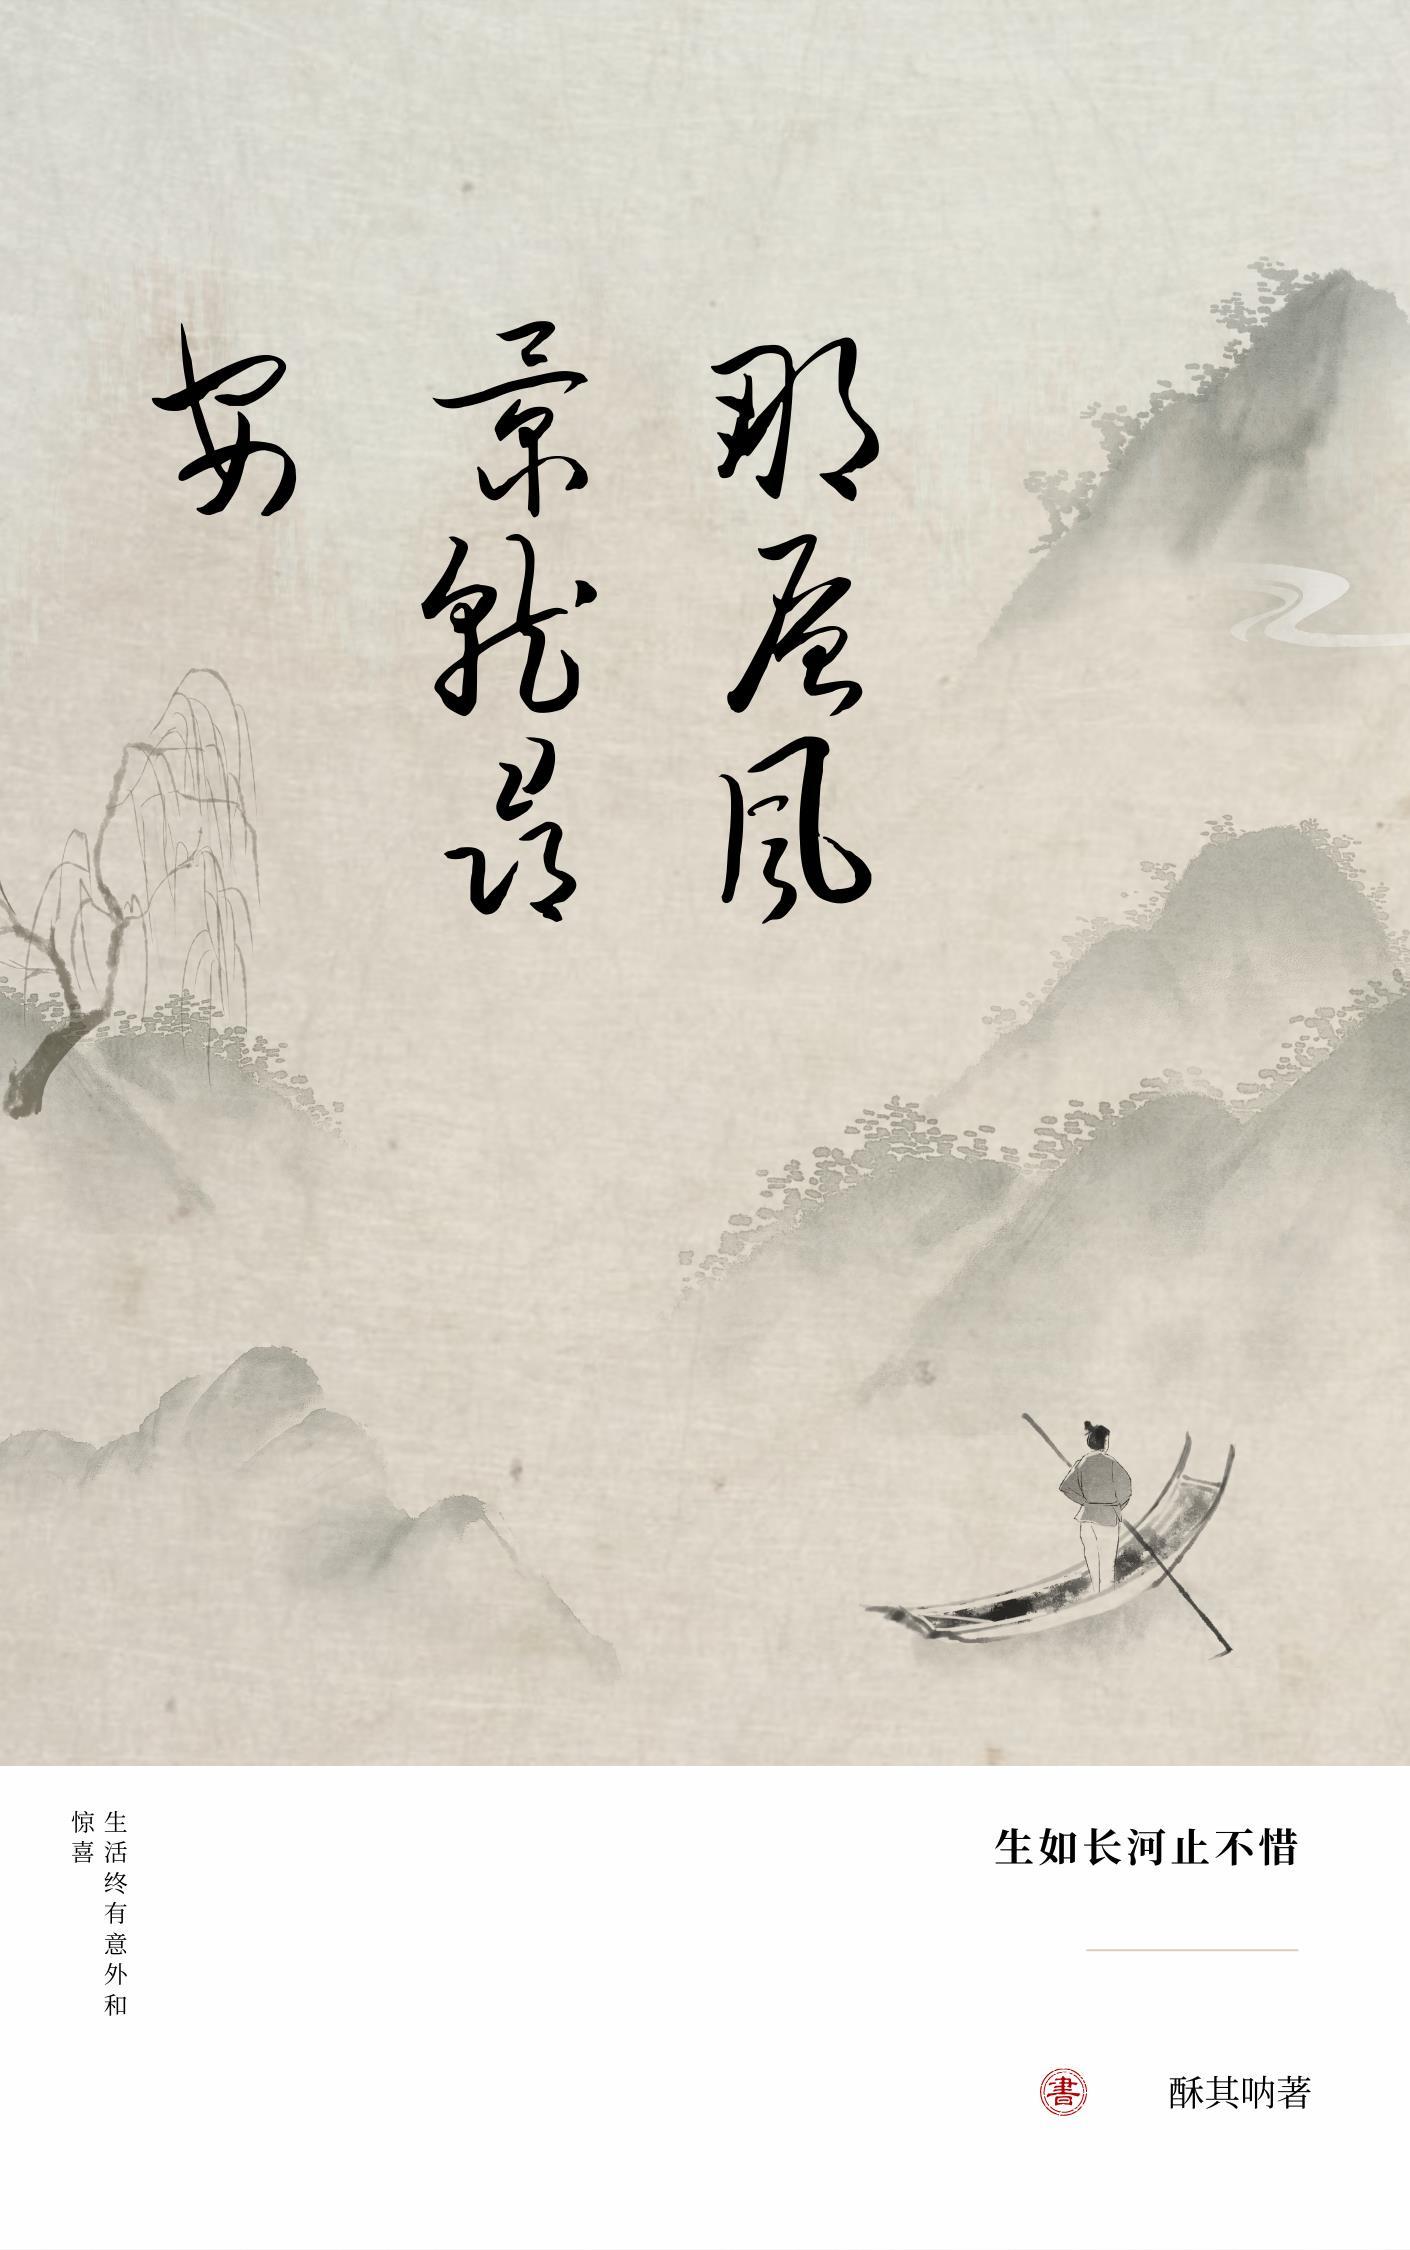 那风
景就
安
生活终有意外和
惊喜
生如长河止不惜
書
酥其呐著